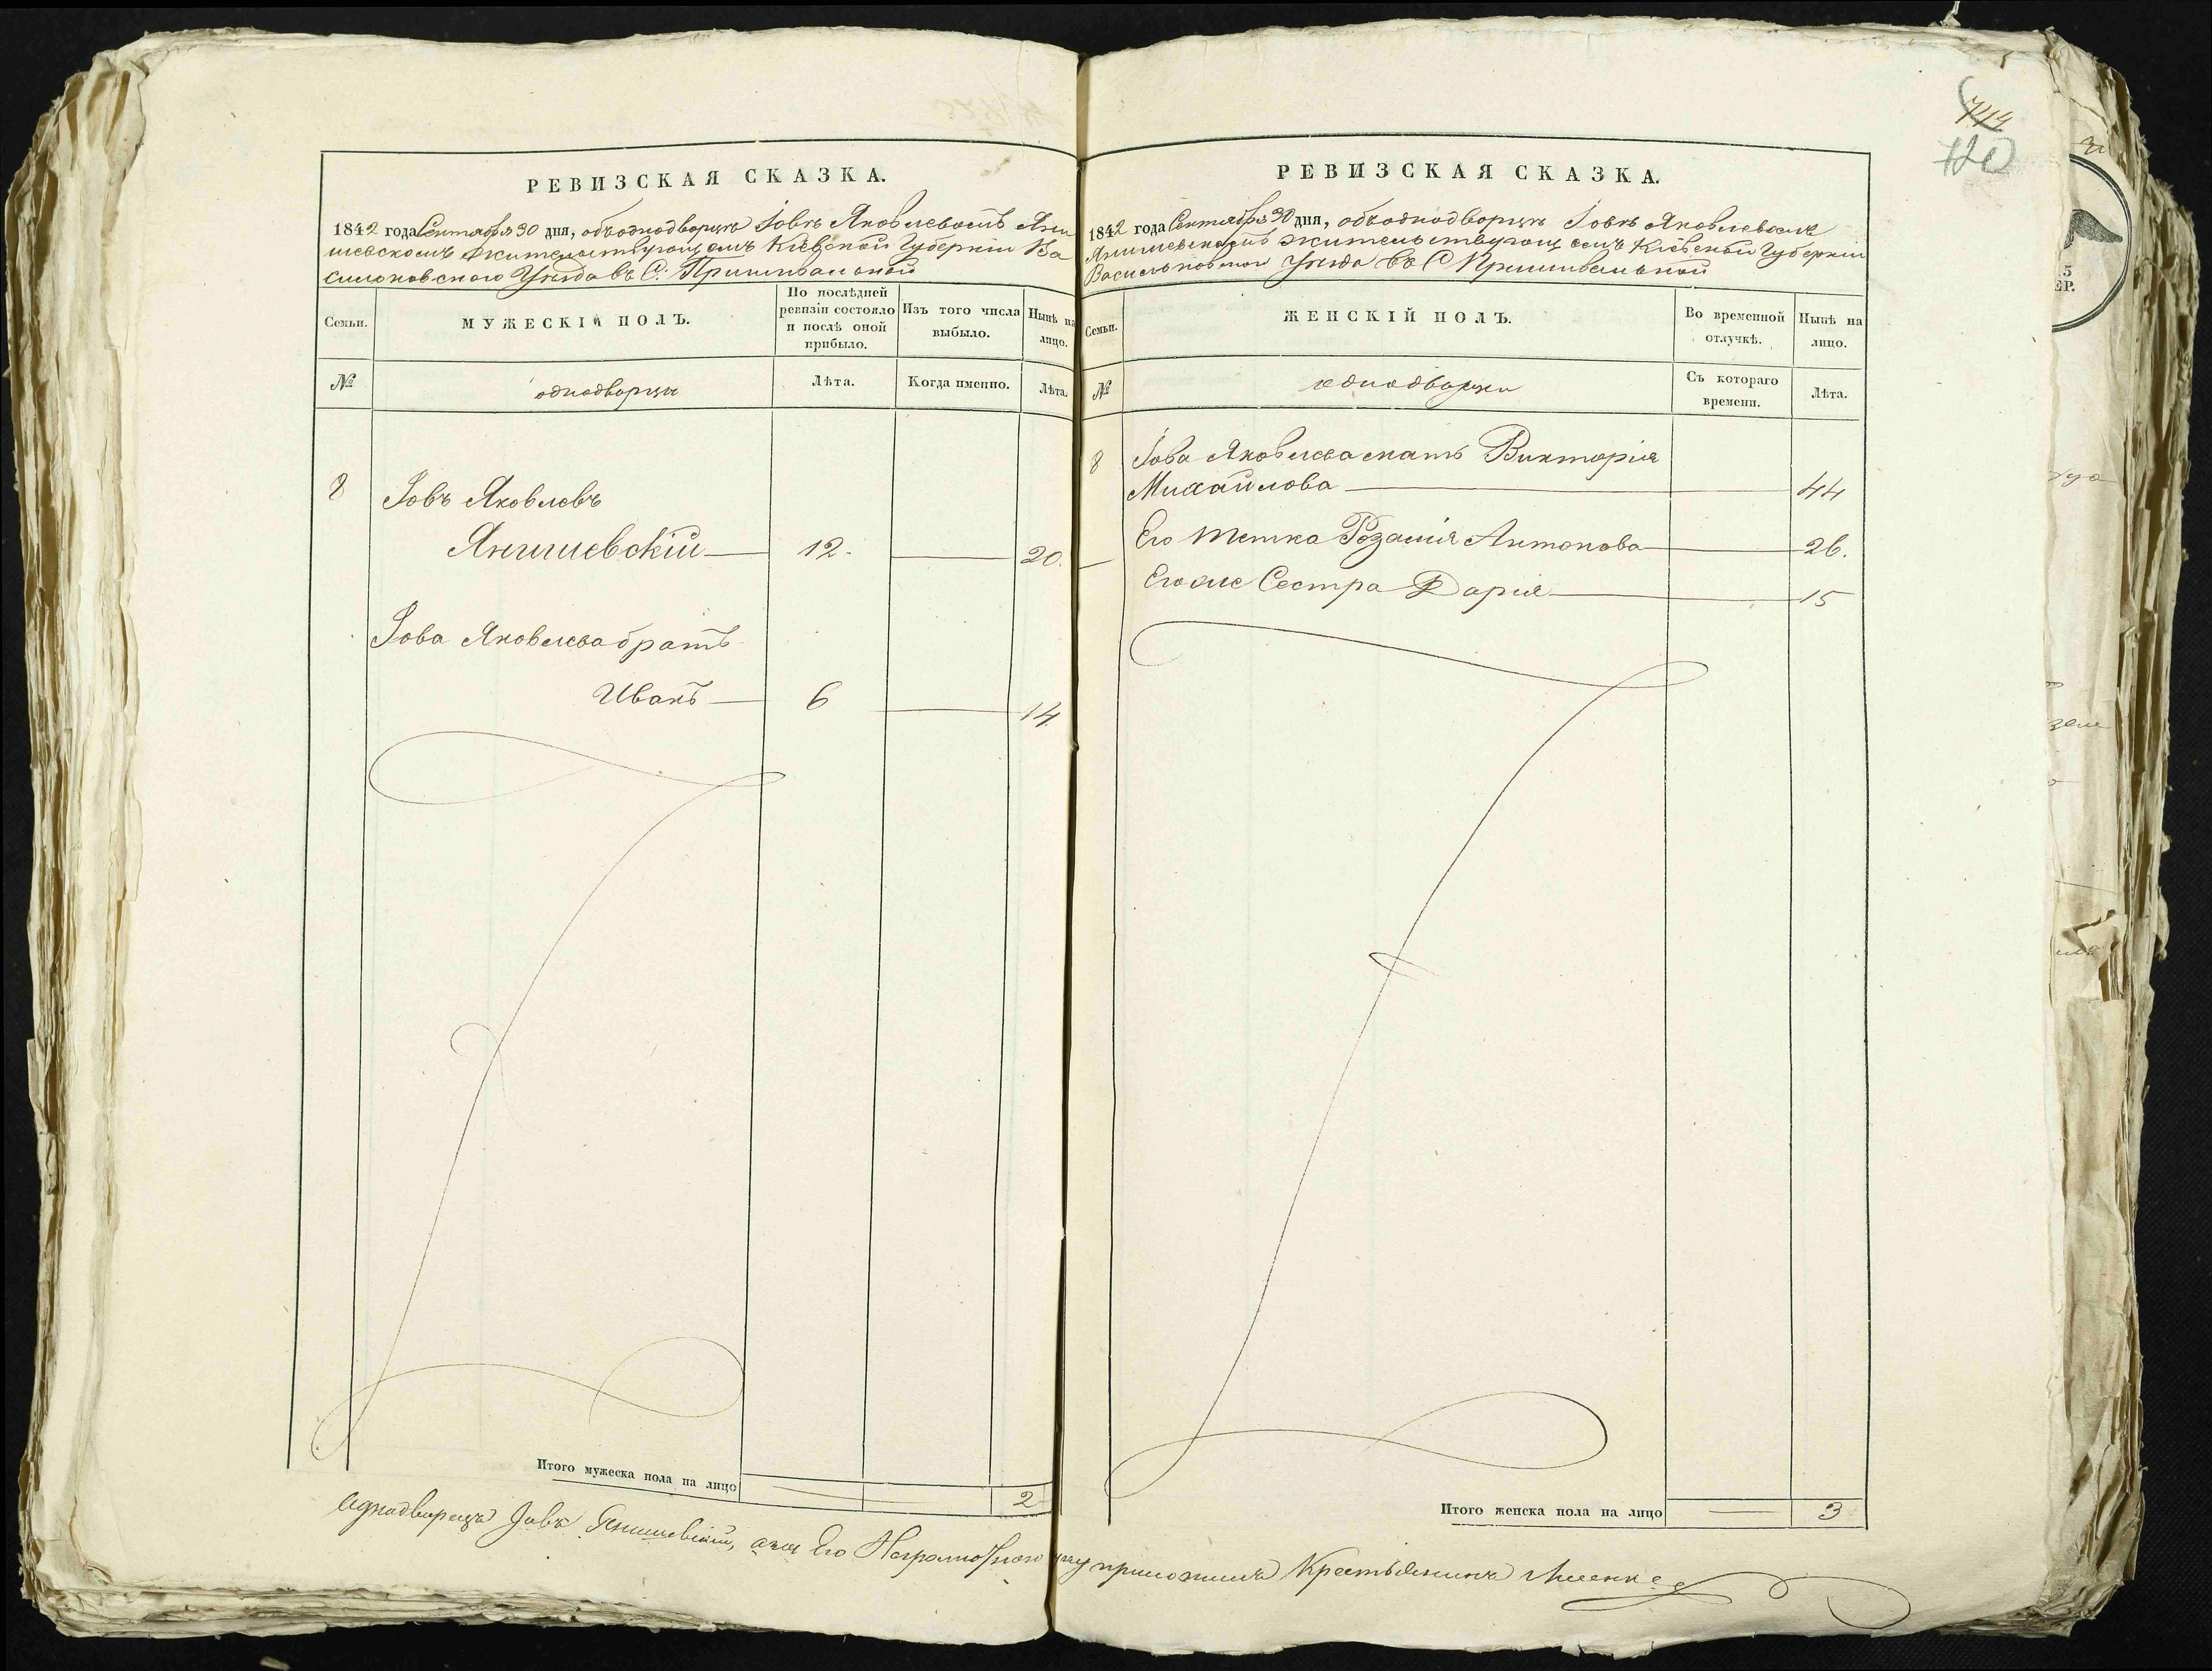 РЕВИЗСКАЯ СКАЗКА.
1842 года Сентября 30 дня, объ однодворцѣ Іовѣ Яковлевомъ Яни
шевскомъ жительствующемъ Кіевской Губерніи Ва
сильковского Уѣзда въ С. Пришивальной
Семьи.
МУЖЕСКІЙ ПОЛЪ.
По послѣдней ревизіи состояло и послѣ оной прибыло.
Изъ того числа выбыло.
Нынѣ на лицо.
№
однодворцы
Лѣта.
Когда именно.
Лѣта.
8 Іовъ Яковлевъ
Янишевскій — 12. — 20.
Іова Яковлева братъ
Иванъ — 6 — 14.
Итого мужеска пола на лицо — 2
РЕВИЗСКАЯ СКАЗКА.
1842 года Сентября 30 дня, объ однодворцѣ Іовѣ Яковлевомъ
Янишевскомъ жительствующемъ Кіевской Губерніи
Васильковского Уѣзда въ С Пришивальной
Семьи.
ЖЕНСКІЙ ПОЛЪ.
Во временной отлучкѣ.
Нынѣ на лицо.
№
однодворки
Съ котораго времени.
Лѣта.
8 Іова Яковлева мать Викторія
Михайлова — 44
Его тетка Розалія Антонова — 26.
Его же Сестра Дарія — 15
Итого женска пола на лицо — 3
Однодворецъ Іовъ Янишевскій, а за Его Неграмотного руку приложилъ Крестьянинъ
744
120